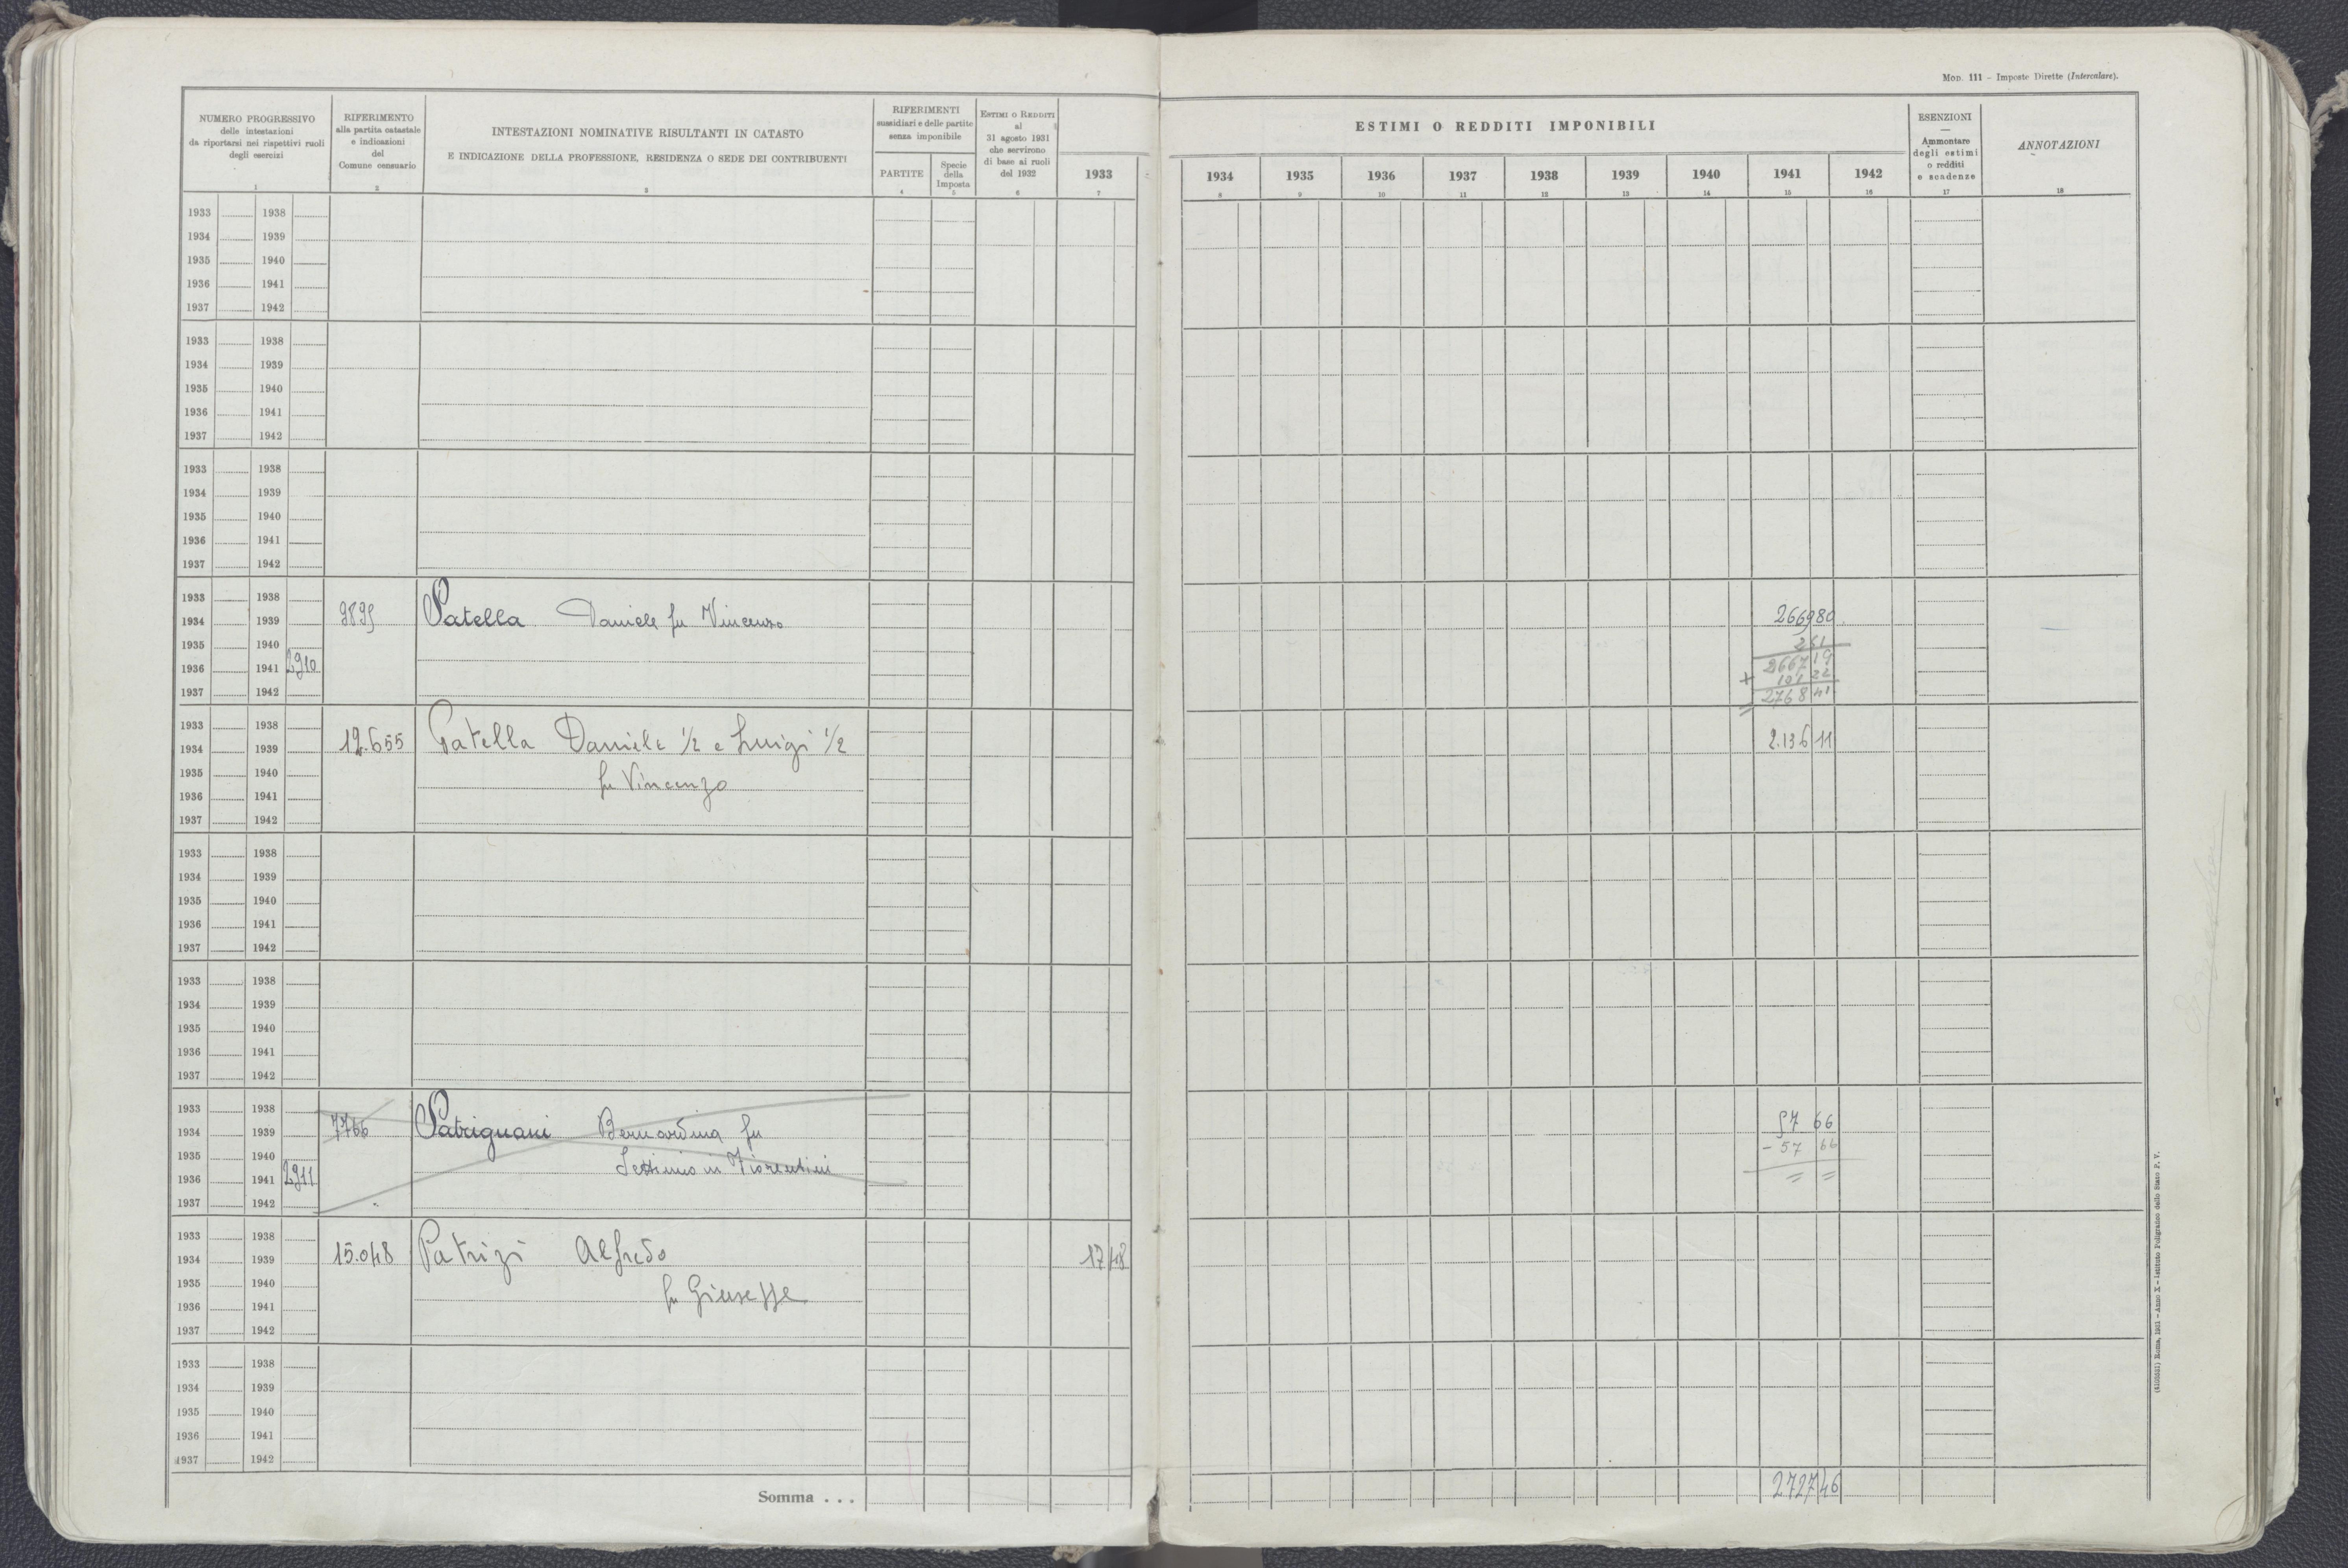 MOD. 111 – Imposte Dirette (Intercalare).
NUMERO PROGRESSIVO
delle intestazioni
da riportarsi nei rispettivi ruoli
degli esercizi
1
RIFERIMENTO
alla partita catastale
e indicazioni
del
Comune censuario
2
INTESTAZIONI NOMINATIVE RISULTANTI IN CATASTO
E INDICAZIONE DELLA PROFESSIONE, RESIDENZA O SEDE DEI CONTRIBUENTI
3
RIFERIMENTI
sussidiari e delle partite
senza imponibile
PARTITE
4
Specie
della
Imposta
5
ESTIMI O REDDITI
al
31 agosto 1931
che servirono
di base ai ruoli
del 1932
6
1933
7
ESTIMI O REDDITI IMPONIBILI
1934 1935 1936 1937 1938 1939 1940 1941 1942
8 9 10 11 12 13 14 15 16
ESENZIONI
—
Ammontare
degli estimi
o redditi
e scadenze
17
ANNOTAZIONI
18
1933 1938
1934 1939
1935 1940
1936 1941
1937 1942
1933 1938
1934 1939
1935 1940
1936 1941
1937 1942
1933 1938
1934 1939
1935 1940
1936 1941
1937 1942
1933 1938
1934 1939 9895 Patella Daniele fu Vincenzo 266980
1935 1940 261
1936 1941 2910 2667 19
+ 101 22
1937 1942 2768 41
1933 1938
1934 1939 12.655 Patella Daniele 1/2 e Luigi 1/2 2.136 11
1935 1940
fu Vincenzo
1936 1941
1937 1942
1933 1938
1934 1939
1935 1940
1936 1941
1937 1942
1933 1938
1934 1939
1935 1940
1936 1941
1937 1942
1933 1938
1934 1939 7766 Patrignani Bernardina fu 57 66
1935 1940 – 57 66
Settimio in Fiorentini
1936 1941 2911 = =
1937 1942
1933 1938
1934 1939 15.048 Patrizi Alfredo 17 48
1935 1940
fu Giuseppe
1936 1941
1937 1942
1933 1938
1934 1939
1935 1940
1936 1941
1937 1942
Somma . . . 2727 46
Roma, 1931 – Anno X – Istituto Poligrafico dello Stato P. V.